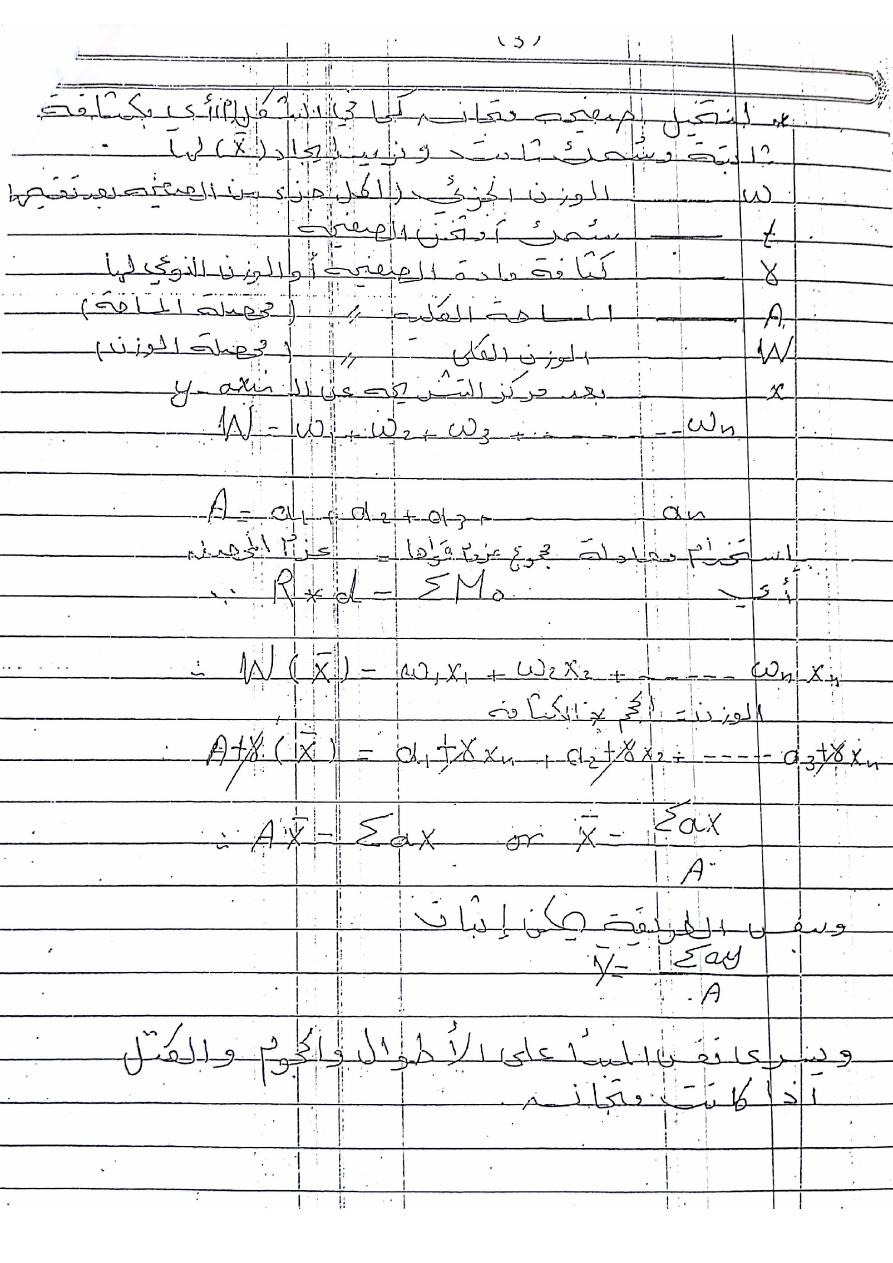 (3)
* لنتخيل صفيحه متجانسه كما في الشكل أي بكثافة
ثابتة وسمك ثابت ونريد إيجاد (x̄) لها
w ـــــ الوزن الجزئي (لكل جزء من الصفيحه بعد تقسيمها
t ـــــ سمك أو تخن الصفيحه
γ ـــــ كثافة مادة الصفيحه أو الوزن النوعي لها
A ـــــ المساحة الكليه 〃 (محصلة المساحة)
W الوزن الكلي 〃 (محصلة الوزن)
x بعد مركز الشريحه عن الـ y-axis
W = w₁ + w₂ + w₃ + -------- wₙ
A = a₁ + a₂ + a₃ + aₙ
إستخدام معادلة مجموع عزوم قواها = عزم المحصله
أي ∵ R * d = ΣM₀
∴ W (x̄) = w₁x₁ + w₂x₂ + ------ wₙ xₙ
الوزن = الحجم * الكثافه
Atγ (x̄) = a₁tγxₙ + a₂tγx₂ + ----- a₃tγxₙ
∴ A x̄ = Σax or x̄ = Σax / A
وبنفس الطريقة يمكن إثبات
ȳ = Σay / A
ويسري نفس المبدأ على الأطوال والحجوم والكتل
إذا كانت متجانسه.